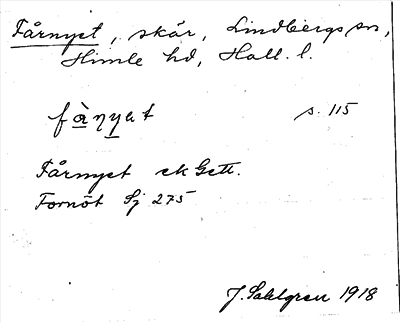 Fårnyet, skär, Lindbergs sn,
Himle hd, Hall. l.
fànyat s. 115
Fårnyet ek Gett.
Fornöt Sj 275
J. Sahlgren 1918